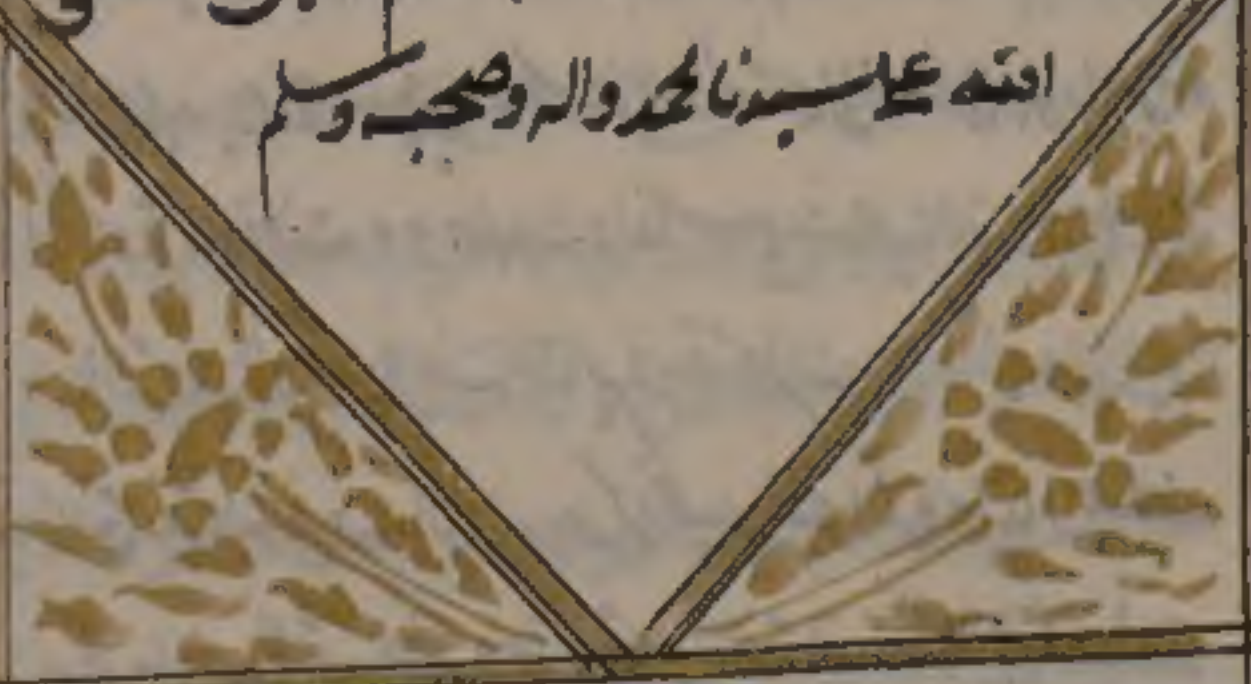 الله على سيدنا محمد واله وصحبه وسلم